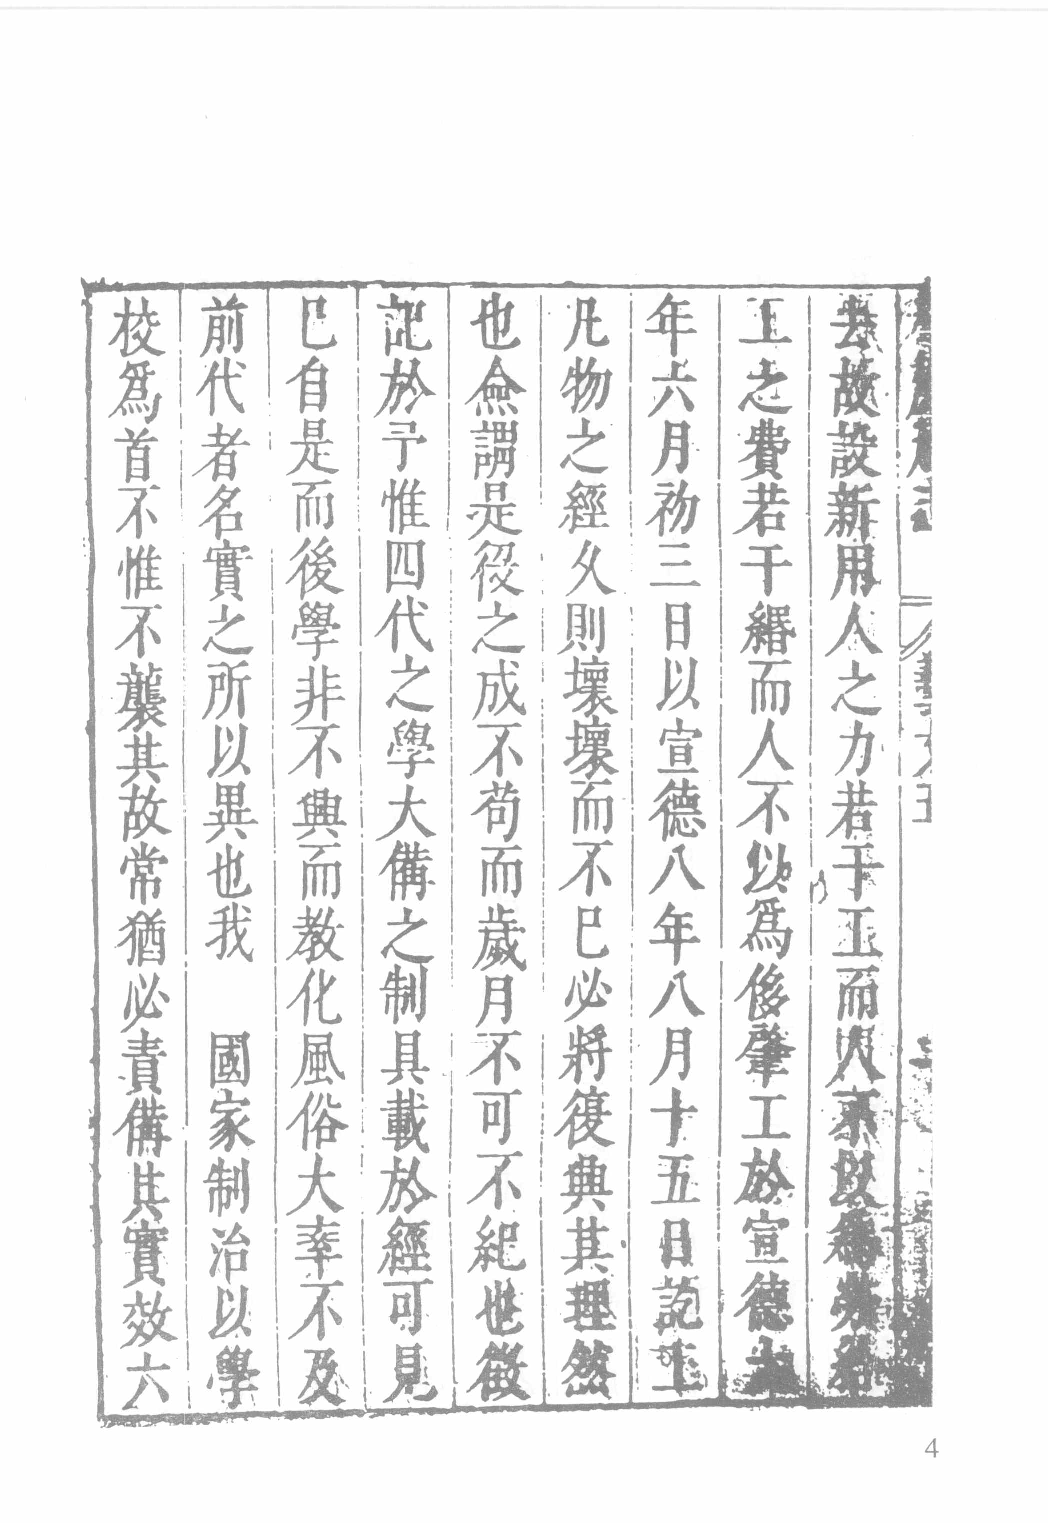 去故設新用人之力若干工而人不以爲勞若
工之費若干緡而人不以爲侈肇工於宣德七
年六月初三日以宣德八年八月十五日訖工
凡物之經久則壞壞而不已必將復興其理然
也僉謂是役之成不苟而歲月不可不紀也徵
記於予惟四代之學大備之制具載於經可見
已自是而後學非不興而教化風俗大率不及
前代者名實之所以異也我　國家制治以學
校爲首不惟不襲其故常猶必責備其實效六
4